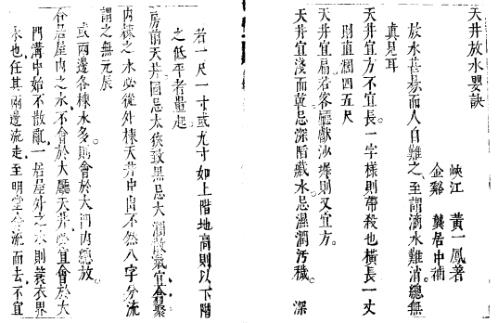 天井放水要訣
峽江 黃一鳳著
金谿 龔居中補
放水甚易而人自難之至謂滴水難消總無
真見耳
天井宜方不宜長一字樣則帶殺也橫長一丈
則直濶四五尺
天井宜扁若客廳獻沙塲則又宜方
天井宜淺而忌深陷戲水忌濕潤污穢 深
若一尺一寸或九寸如上階地高則以下階
之低平者量起
房前天井固忌太狹致黑忌大濶散氣宜合聚
內棟之水必從外棟天井中出不然八字分流
謂之無元辰
或兩邊各棟水多則會於大門內總放
各居屋內之水不會於大廳天井必宜會於大
門溝中始不散亂一居屋外之水則簑衣界
水也任其兩邊流走至明堂合流而去不宜